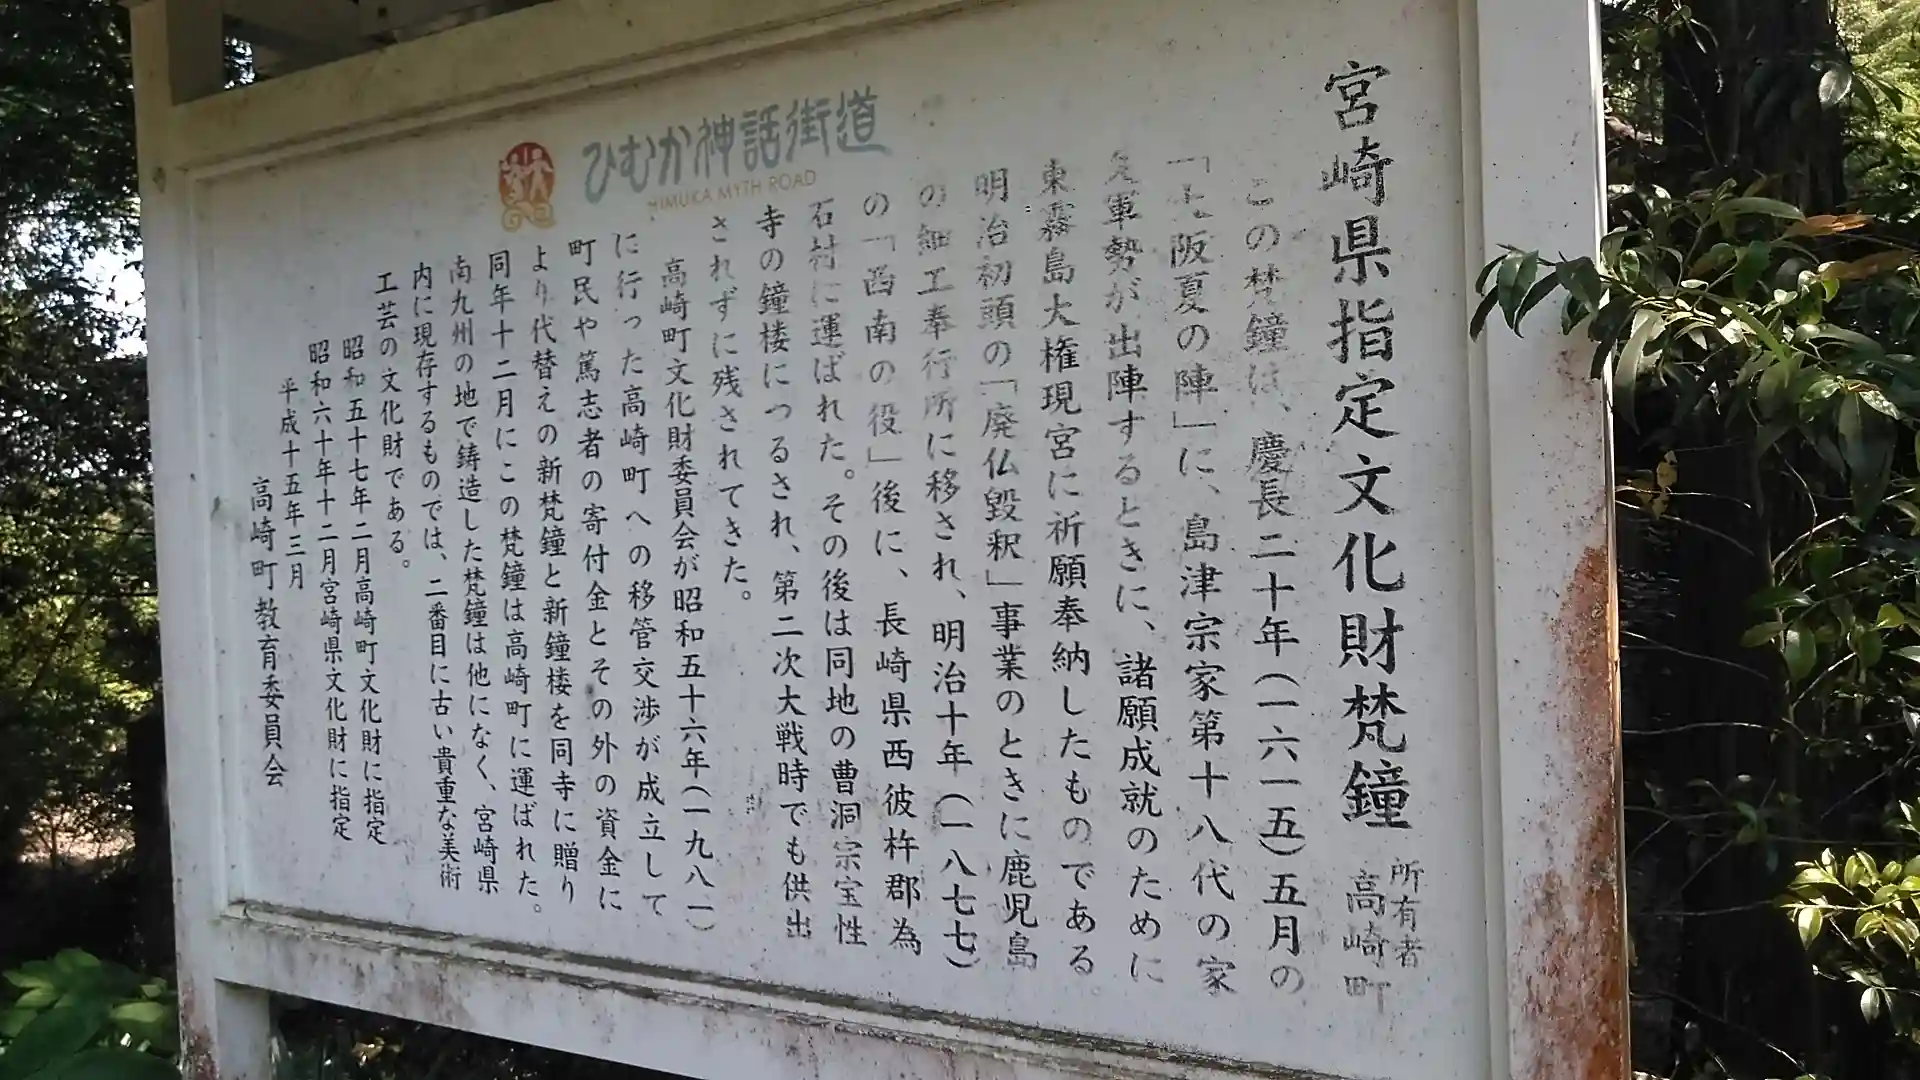 宮崎県指定文化財梵鐘
所有者
高崎町
この梵鐘は、慶長二十年(一六一五)五月の
「大阪夏の陣」に、島津宗家第十八代の家
久軍勢が出陣するときに、諸願成就のために
東霧島大権現宮に祈願奉納したものである
明治初頭の「廃仏毀釈」事業のときに鹿児島
の細工奉行所に移され、明治十年(一八七七)
の「西南の役」後に、長崎県西彼杵郡為
石村に運ばれた。その後は同地の曹洞宗宝性
寺の鐘楼につるされ、第二次大戦時でも供出
されずに残されてきた。
高崎町文化財委員会が昭和五十六年(一九八一)
に行った高崎町への移管交渉が成立して
町民や篤志者の寄付金とその外の資金に
より代替えの新梵鐘と新鐘楼を同寺に贈り
同年十二月にこの梵鐘は高崎町に運ばれた。
南九州の地で鋳造した梵鐘は他になく、宮崎県
内に現存するものでは、二番目に古い貴重な美術
工芸の文化財である。
昭和五十七年二月高崎町文化財に指定
昭和六十年十二月宮崎県文化財に指定
平成十五年三月
高崎町教育委員会
ひむか神話街道
HIMUKA MYTH ROAD